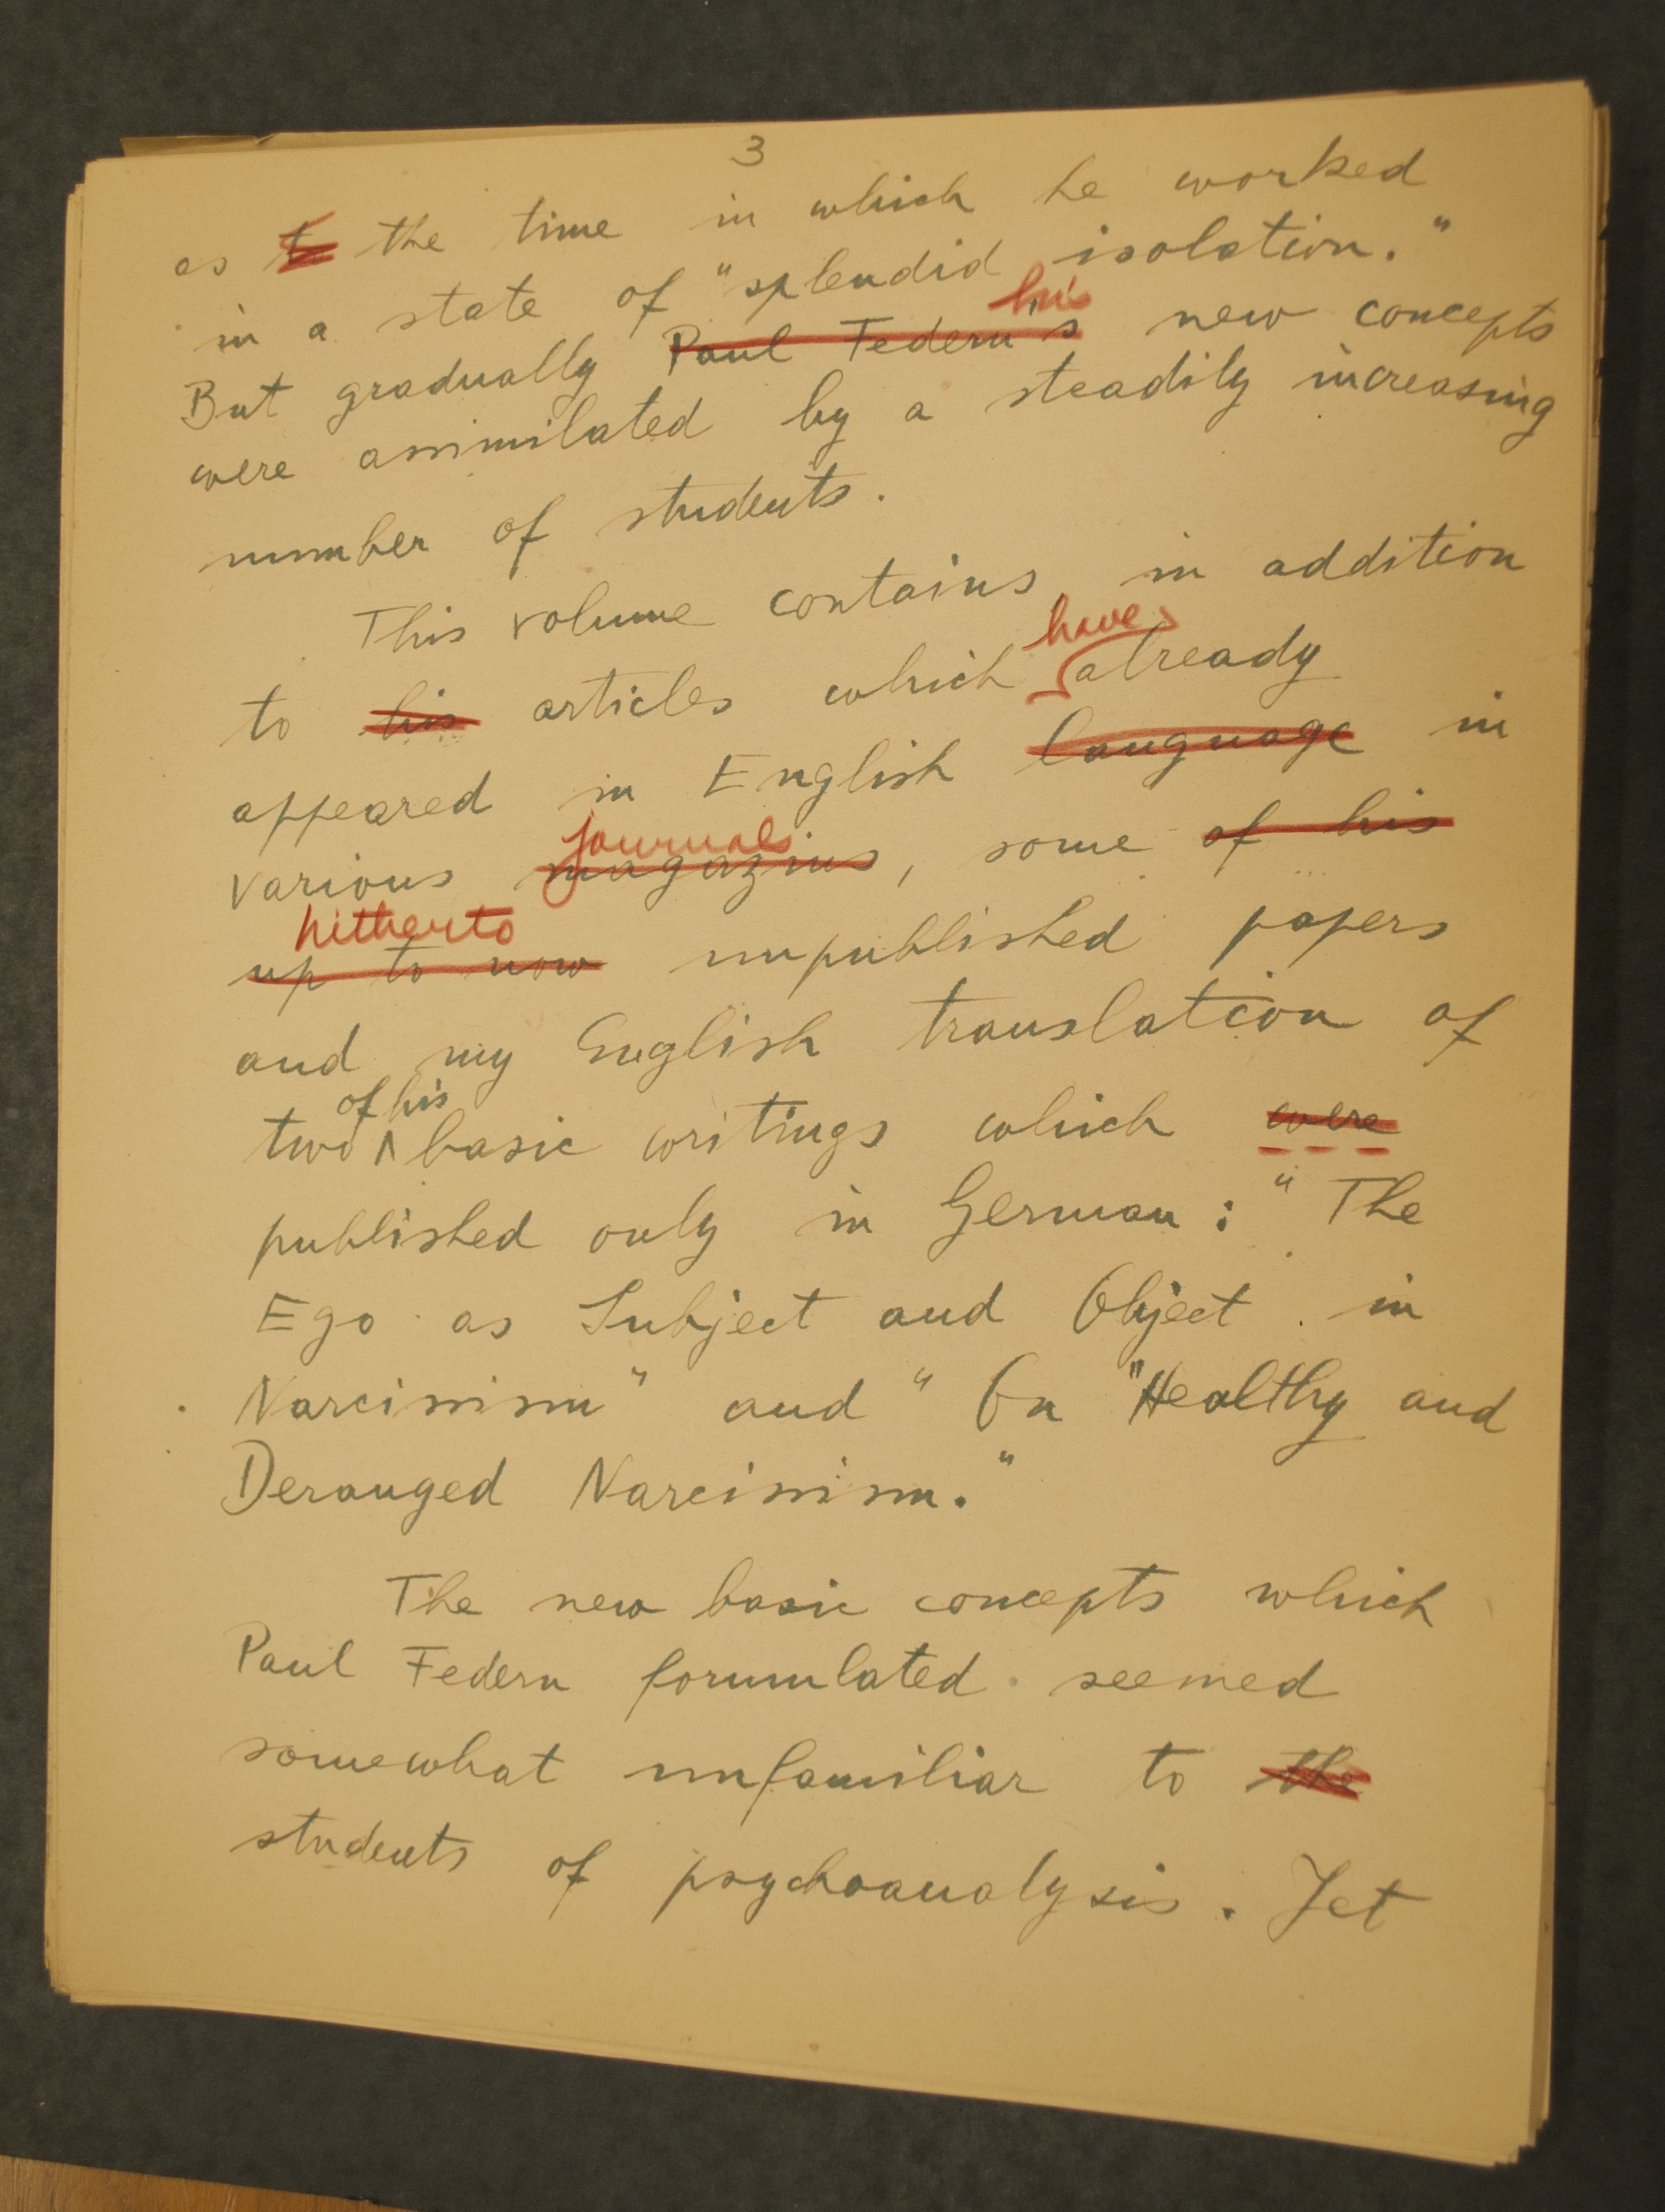 3
as to the time in which he worked
in a state of "splendid isolation."
his
But gradually Paul Federn's new concepts
were assimilated by a steadily increasing
number of students.
This volume contains, in addition
have
to his articles which already
appeared in English language in
journals
various magazins, some of his
hitherto
up to now unpublished papers
and my English translation of
of his
two ∧ basic writings which were
published only in German: "The
Ego as Subject and Object in
Narcissism" and "On "Healthy and
Deranged Narcissism."
The new basic concepts which
Paul Federn formulated seemed
somewhat unfamiliar to the
students of psychoanalysis. Yet